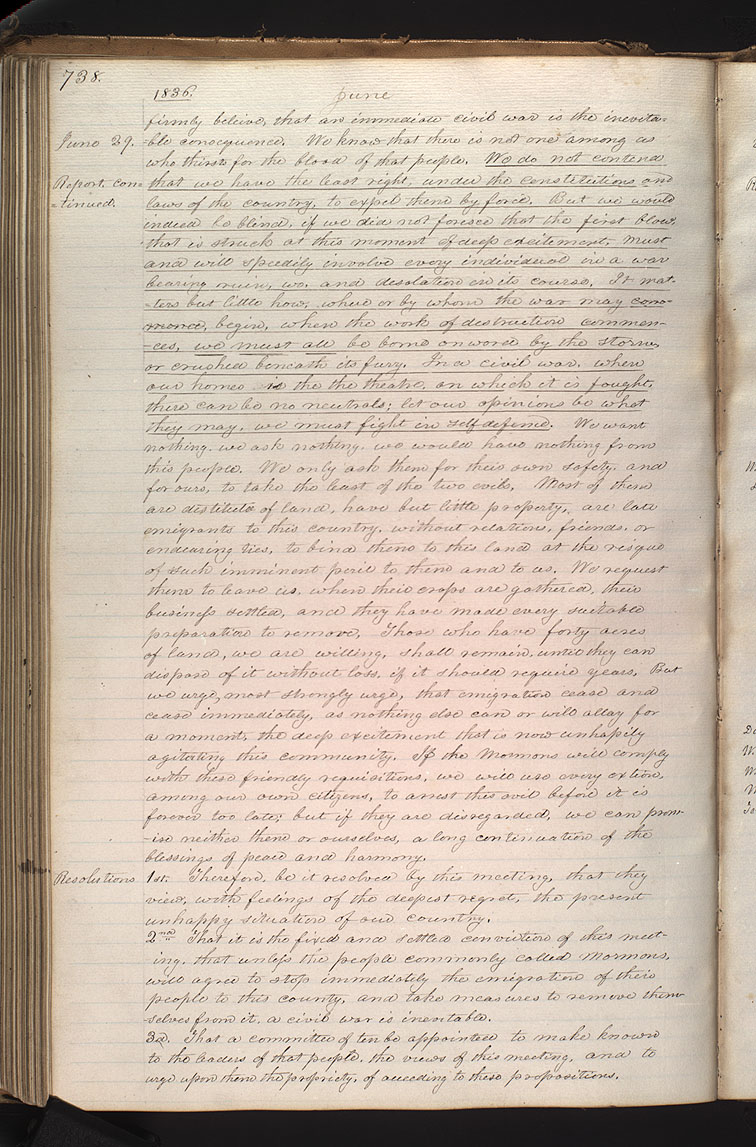 738.
1836. June
firmly beleive, that an immediate civil war is the inevita=
June 29. =ble consequence. We know that there is not one among us
who thirsts for the blood of that people. We do not contend
Report con= that we have the least right, under the constitutions and
=tinued. laws of the country, to expel them by force. But we would
indeed be blind, if we did not foresee that the first blow,
that is struck at this moment of deep excitement, must
and will speedily involve every individual in a war
bearing ruin, wo, and desolation in its course. It mat-
-ters but little how, where or by whom the war may com=
mence, begin, when the work of destruction commen-
-ces, we must all be borne onward by the storm,
or crushed beneath its fury. In a civil war, where
our homes is the the theatre, on which it is fought,
there can be no neutrals; let our opinions be what
they may, we must fight in self defence. We want
nothing, we ask nothing, we would have nothing from
this people. We only ask them for their own safety, and
for ours, to take the least of the two evils. Most of them
are distitute of land, have but little property, are late
emigrants to this country, without relations, friends, or
endearing ties, to bind them to this land at the risque
of such imminent peril to them and to us. We request
them to leave us, when their crops are gathered, their
business settled, and they have made every suitable
preparation to remove. Those who have forty acres
of land, we are willing, shall remain, until they can
dispose of it without loss, if it should require years. But
we urge, most strongly urge, that emigration cease and
cease immediately, as nothing else can or will allay for
a moment, the deep excitement that is now unhapily
agitating this community. If the Mormons will comply
with these friendly requisitions, we will use every extion,
among our own citizens, to arrest this evil before it is
forever too late; but if they are disregarded, we can prom-
-ise neither them or ourselves, a long continuation of the
blessings of peace and harmony.
Resolutions 1st. Therefore, be it resolved by this meeting, that they
view, with feelings of the deepest regret, the present
unhappy situation of our country.
2nd That it is the fixed and settled conviction of this meet-
ing, that unless the people commonly called Mormons,
will agree to stop immediately the emigration of their
people to this county, and take measures to remove them-
selves from it, a civil war is inevitable.
3d. That a committee of ten be appointed to make known
to the leaders of that people, the views of this meeting, and to
urge upon them the propriety, of acceeding to these propositions.